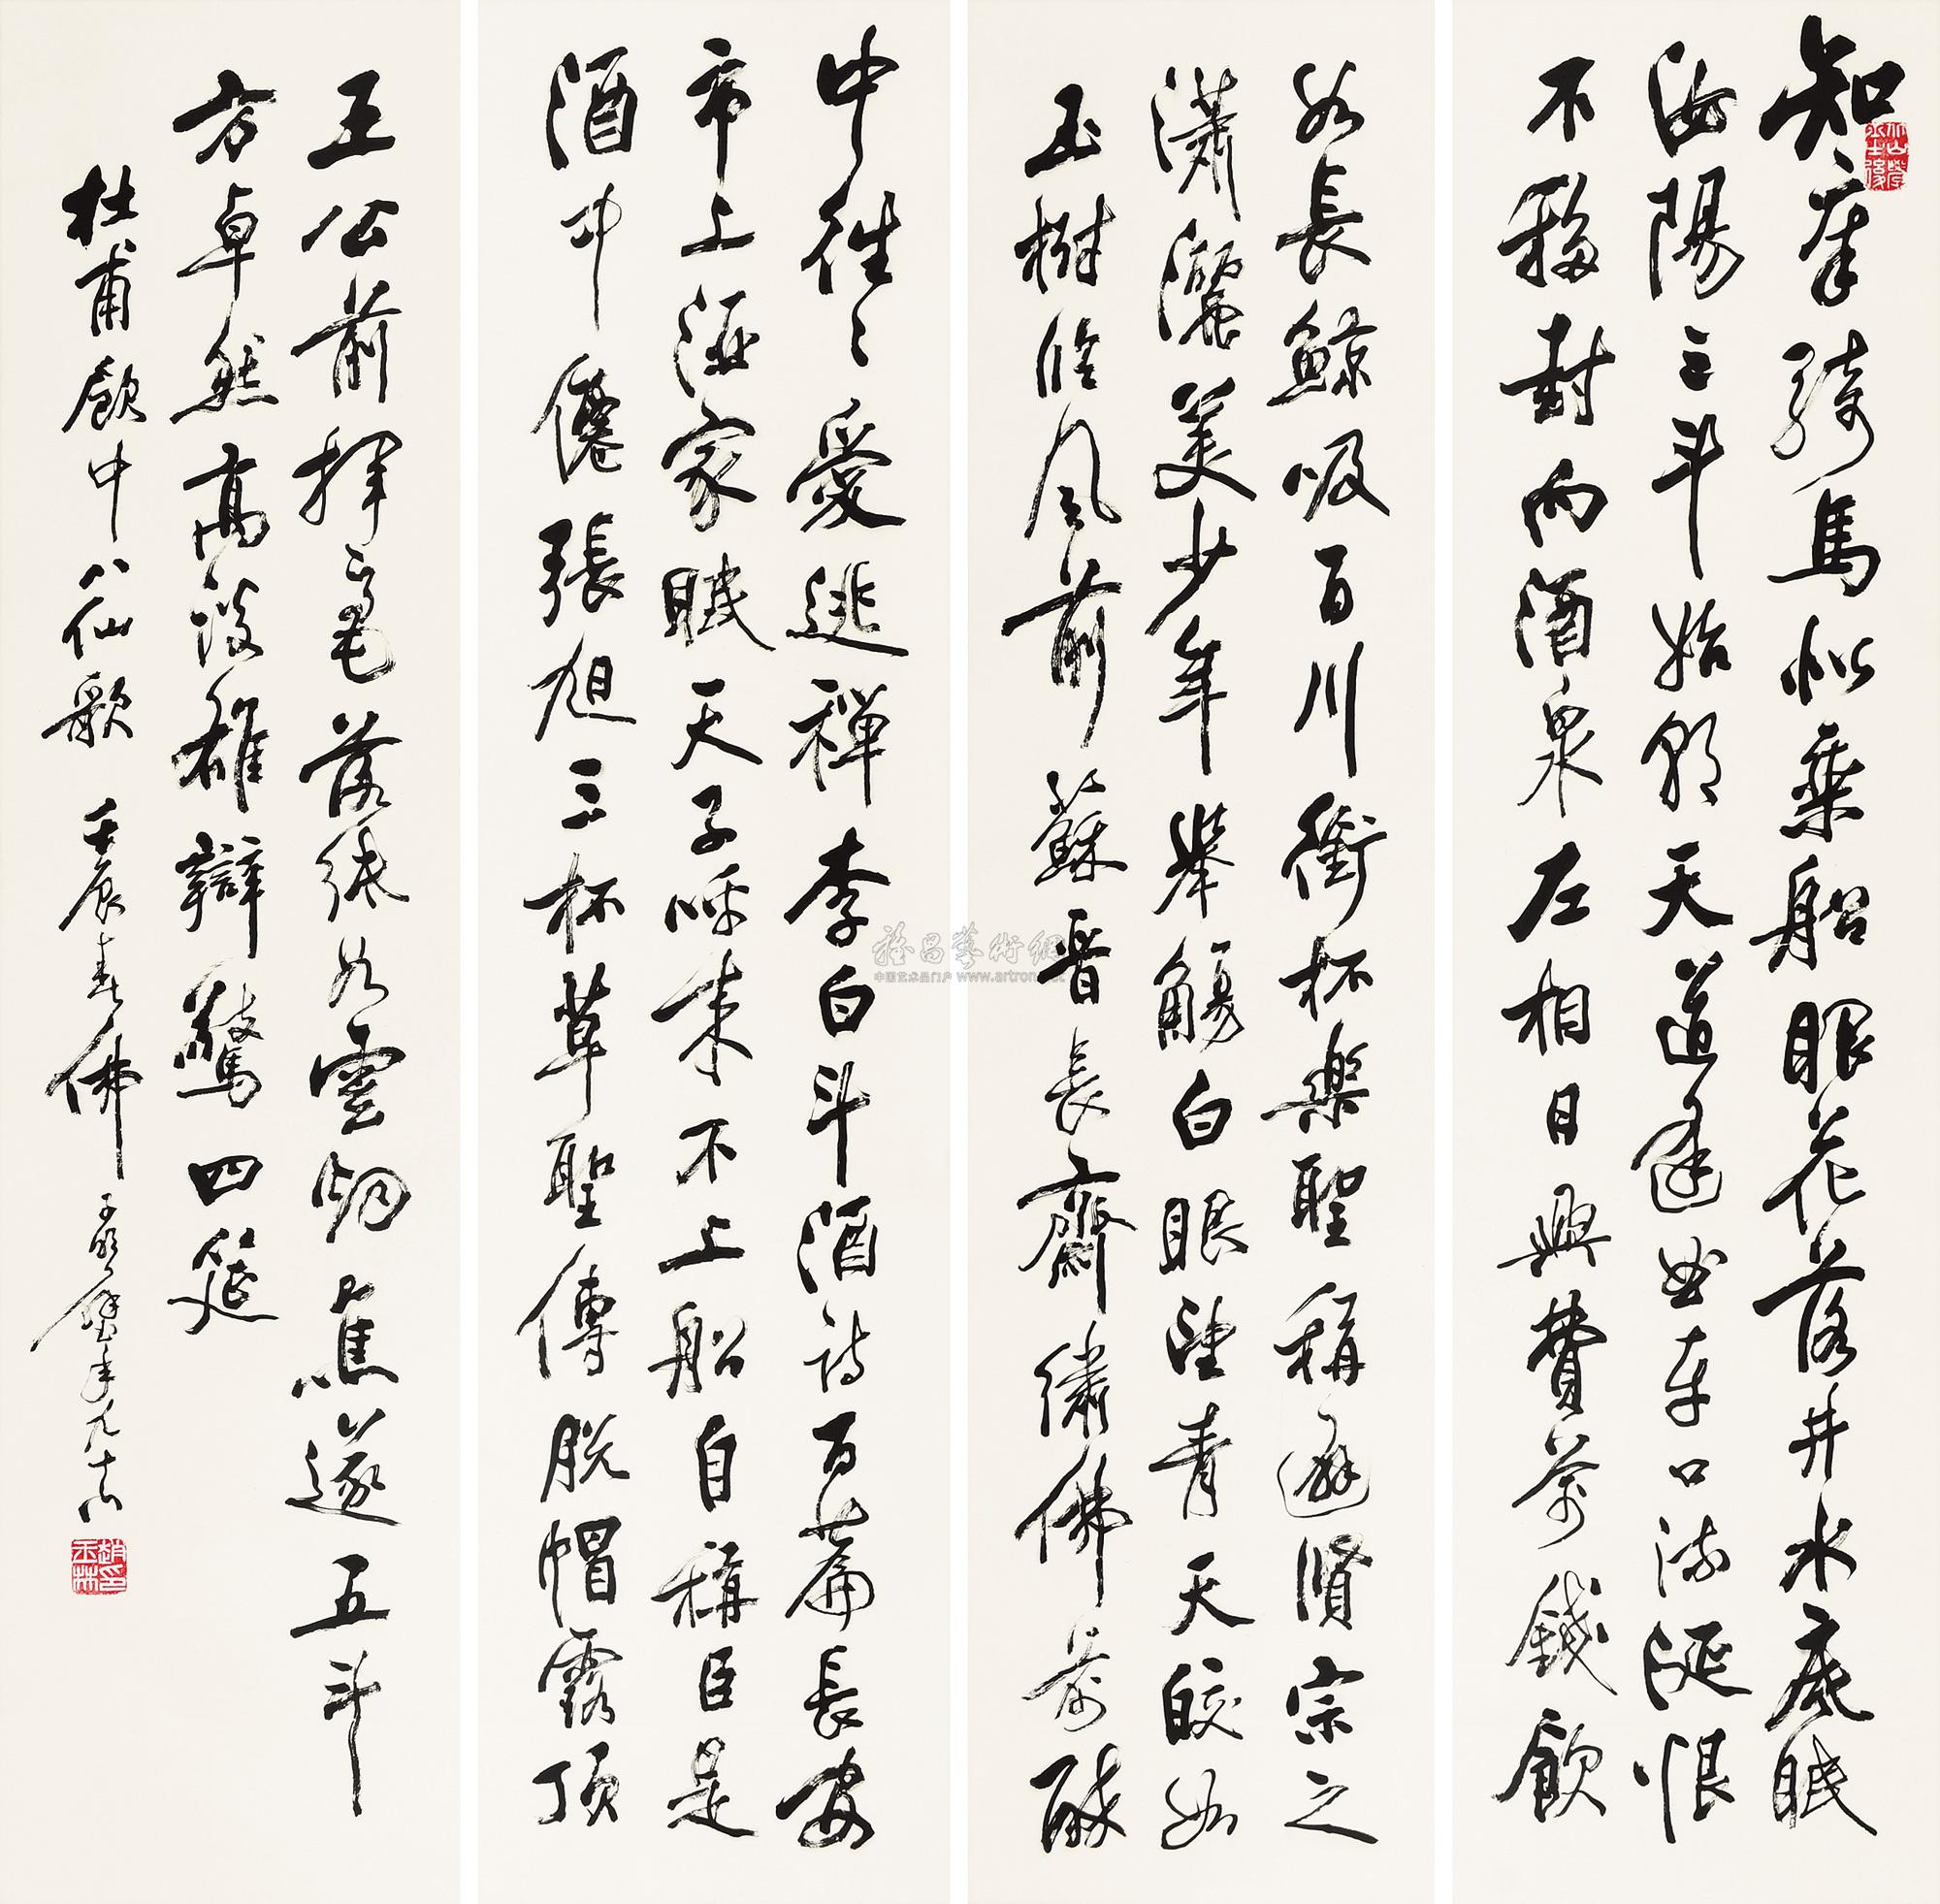 知章騎馬似乘船眼花落井水底眠
汝陽三斗始朝天道逢曲車口流涎恨
不移封向酒泉左相日興費萬錢飲
如長鯨吸百川銜杯樂聖稱避賢宗之
瀟灑美少年舉觴白眼望青天皎如
玉樹臨風前蘇晉長齋繡佛前醉
中往〻愛逃禪李白斗酒詩百篇長安
市上酒家眠天子呼來不上船自稱臣是
酒中僊張旭三杯草聖傳脫帽露頂
王公前揮毫落紙如雲烟焦遂五斗
方卓然高談雄辯驚四筵
杜甫飲中八仙歌 壬辰春佛子年九十六
雅昌藝術網
中国艺术品门户 www.artron.net